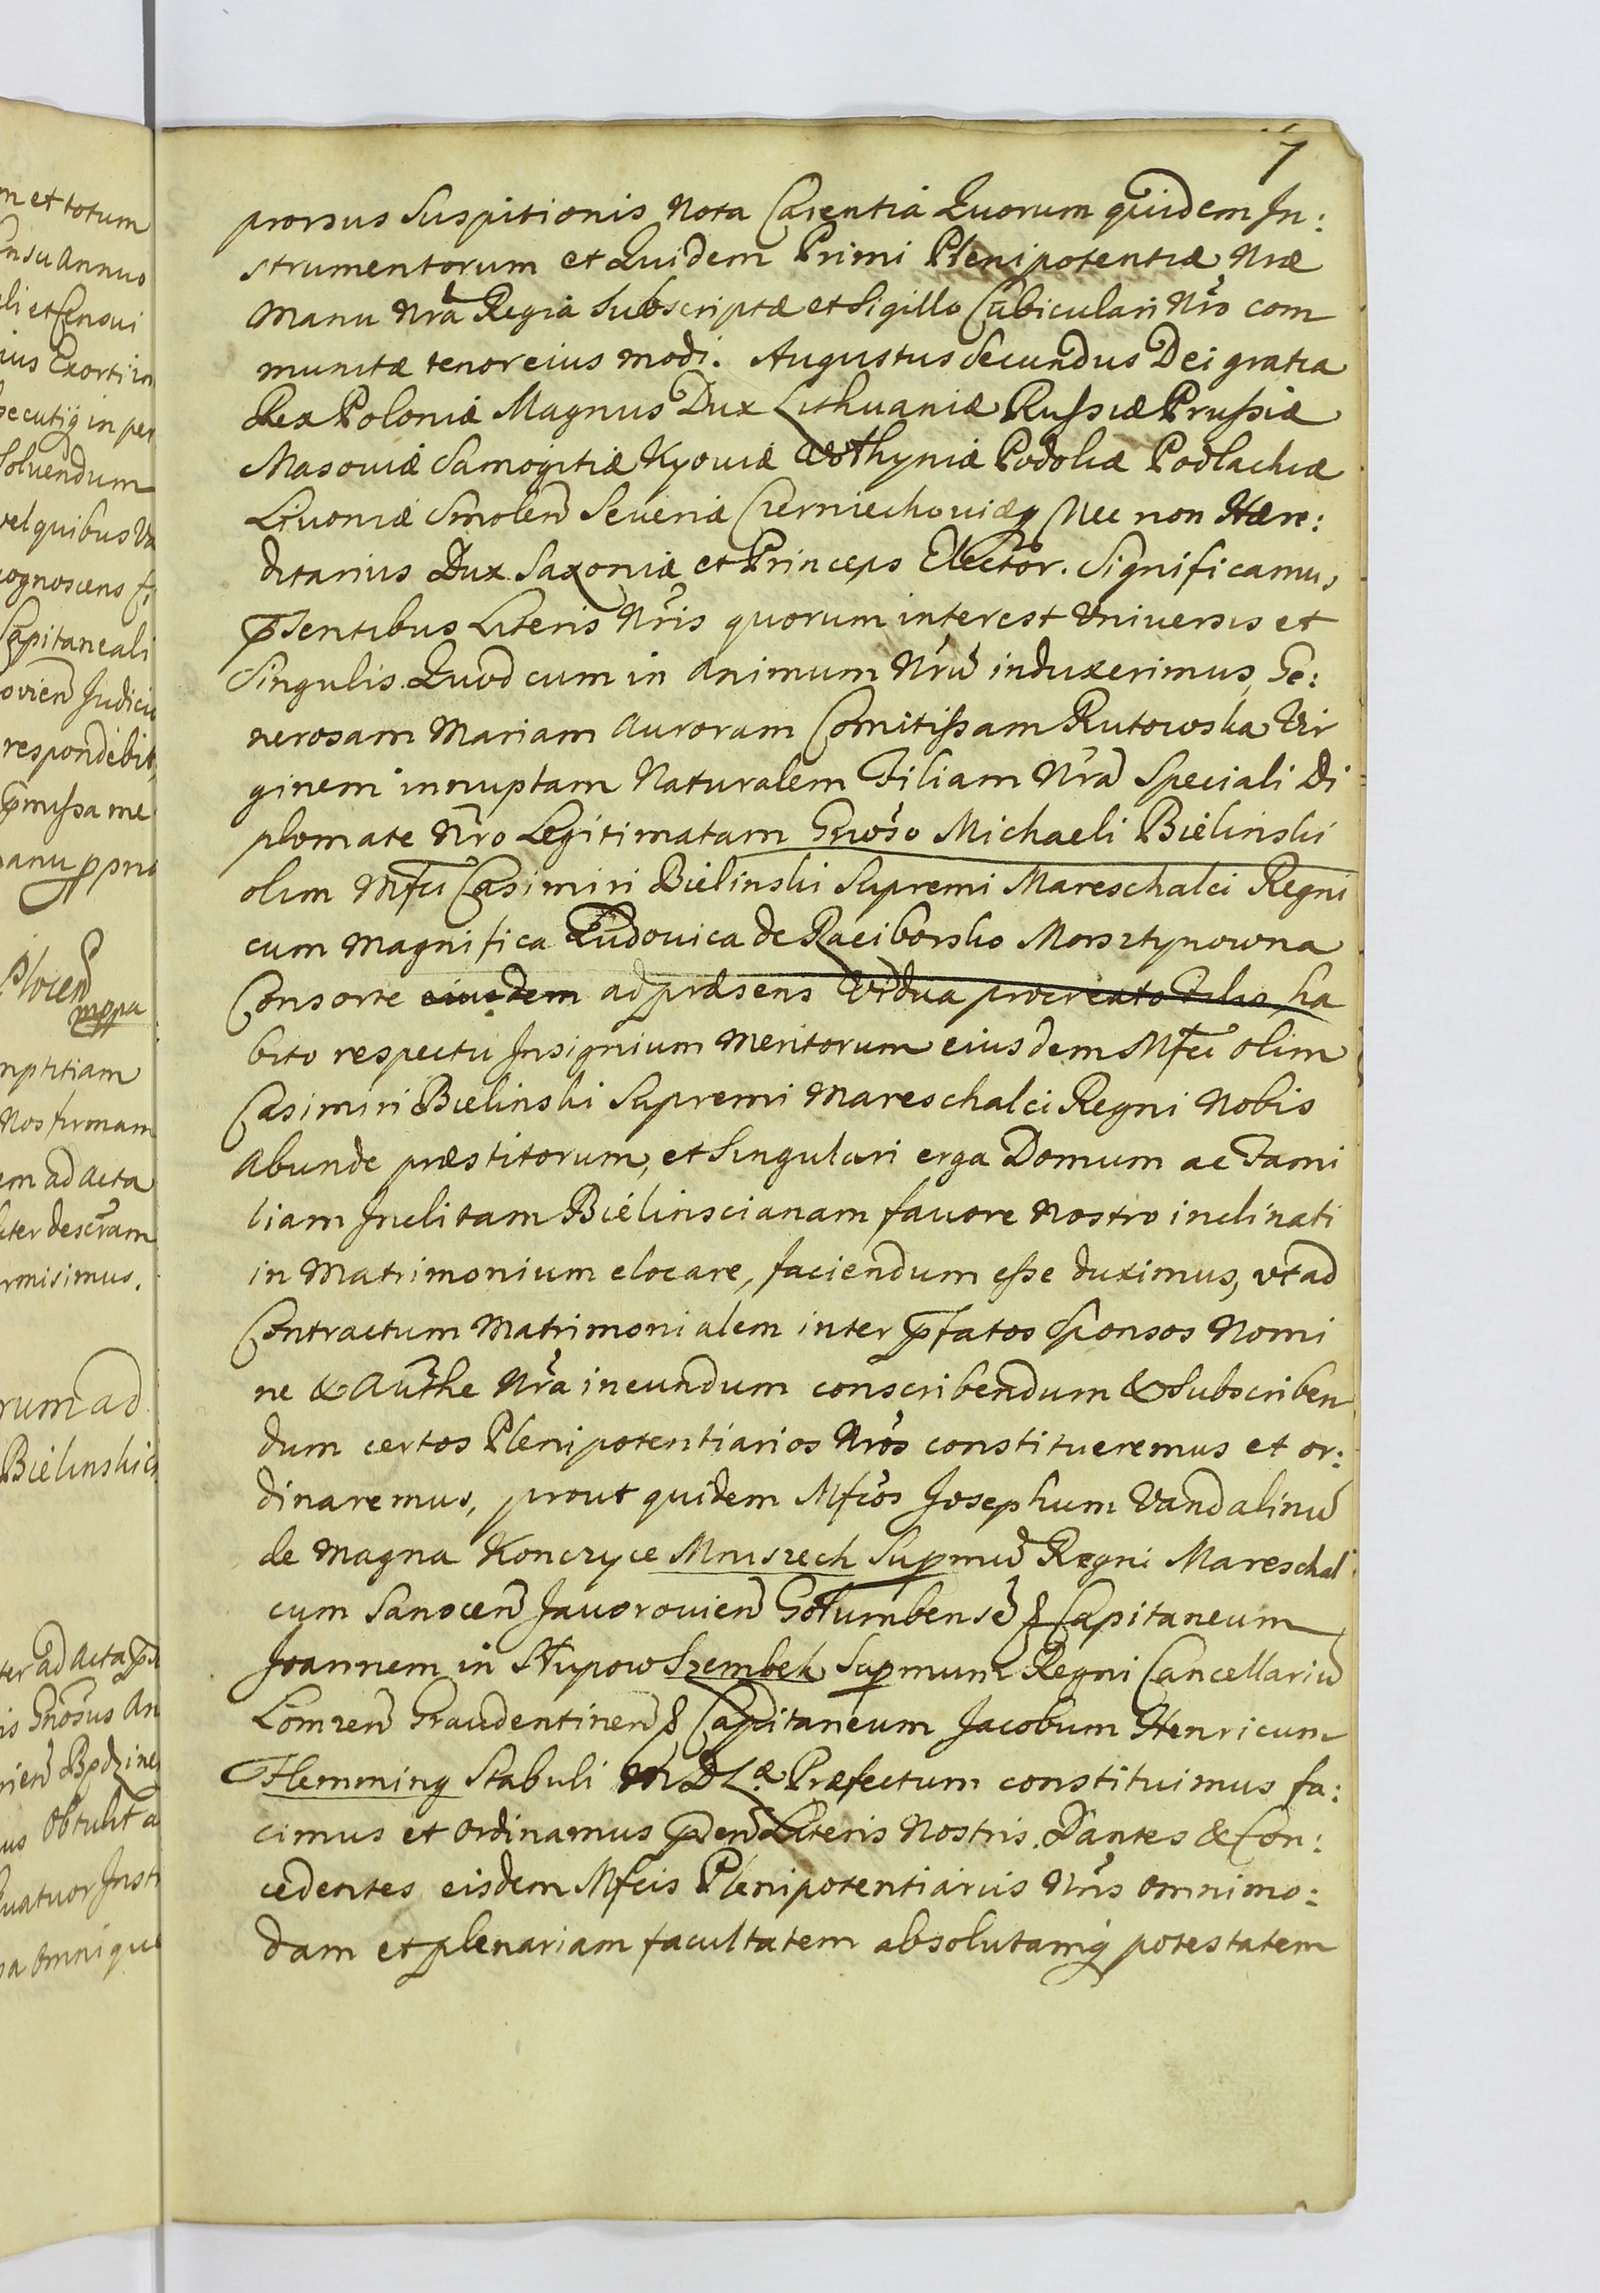 7
prorsus Suspitionis Nota Carentia Quorum quidem In:
strumentorum et Quidem Primi Plenipotentiæ Nræ
Manu Nrâ Regia Subscriptæ et Sigillo Cubiculari Nro com
munitæ tenor eius modi. Augustus Secundus Dei gratia
Rex Poloniæ Magnus Dux Lithuaniæ Russiæ Prussiæ
Masoviæ Samogitiæ Kyoviæ Wolhyniæ Podoliæ Podlachiæ
Livoniæ Smolen Severiæ Czerniechoviæq Nec non Hære:
ditarius Dux Saxoniæ et Princeps Elector. Significamus
pṡentibus Literis Nris quorum interest Vniversis et
Singulis. Quod cum in animum Nrũ induxerimus, Ge:
nerosam Mariam Auroram Comitissam Rutowska Vir
ginem innuptam Naturalem Filiam Nrã Speciali Di
plomate Nro Legitimatam Gnoso Michaeli Bielinski
olim Mfci Casimiri Bielinski Supremi Mareschalci Regni
cum Magnifica Ludovica de Raciborsko Morsztynowna
Consorte eiusdem ad præsens Vidua procreato Filio ha
bito respectu Insignium Meritorum eiusdem Mfci olim
Casimiri Bielinski Supremi Mareschalci Regni Nobis
Abunde præstitorum, et Singulari erga Domum ac Fami
liam Inclitam Bielinscianam favore Nostro inclinati
in Matrimonium elocare, faciendum esse duximus, vt ad
Contractum Matrimonialem inter pfatos Sponsos Nomi
ne & Authe Nra ineundum conscribendum & Subscriben
dum certos Plenipotentiarios Nros constitueremus et or:
dinaremus, prout quidem Mfcos Josephum Vandalinũ
de Magna Konczyce Mniszech Supmũ Regni Mareschal
cum Sanocen Javorovien Golumbensẽ & Capitaneum
Joannem in Słupow Szembek Supmum Regni Cancellariũ
Lomzen Graudentinen & Capitaneum Jacobum Henricum
Flemming Stabuli M D Læ Præfectum constituimus fa:
cimus et ordinamus pñtibus Literis Nostris. Dantes & Con:
cedentes eisdem Mfcis Plenipotentiariis Nris omnimo:
dam et plenariam facultatem absolutamq potestatem